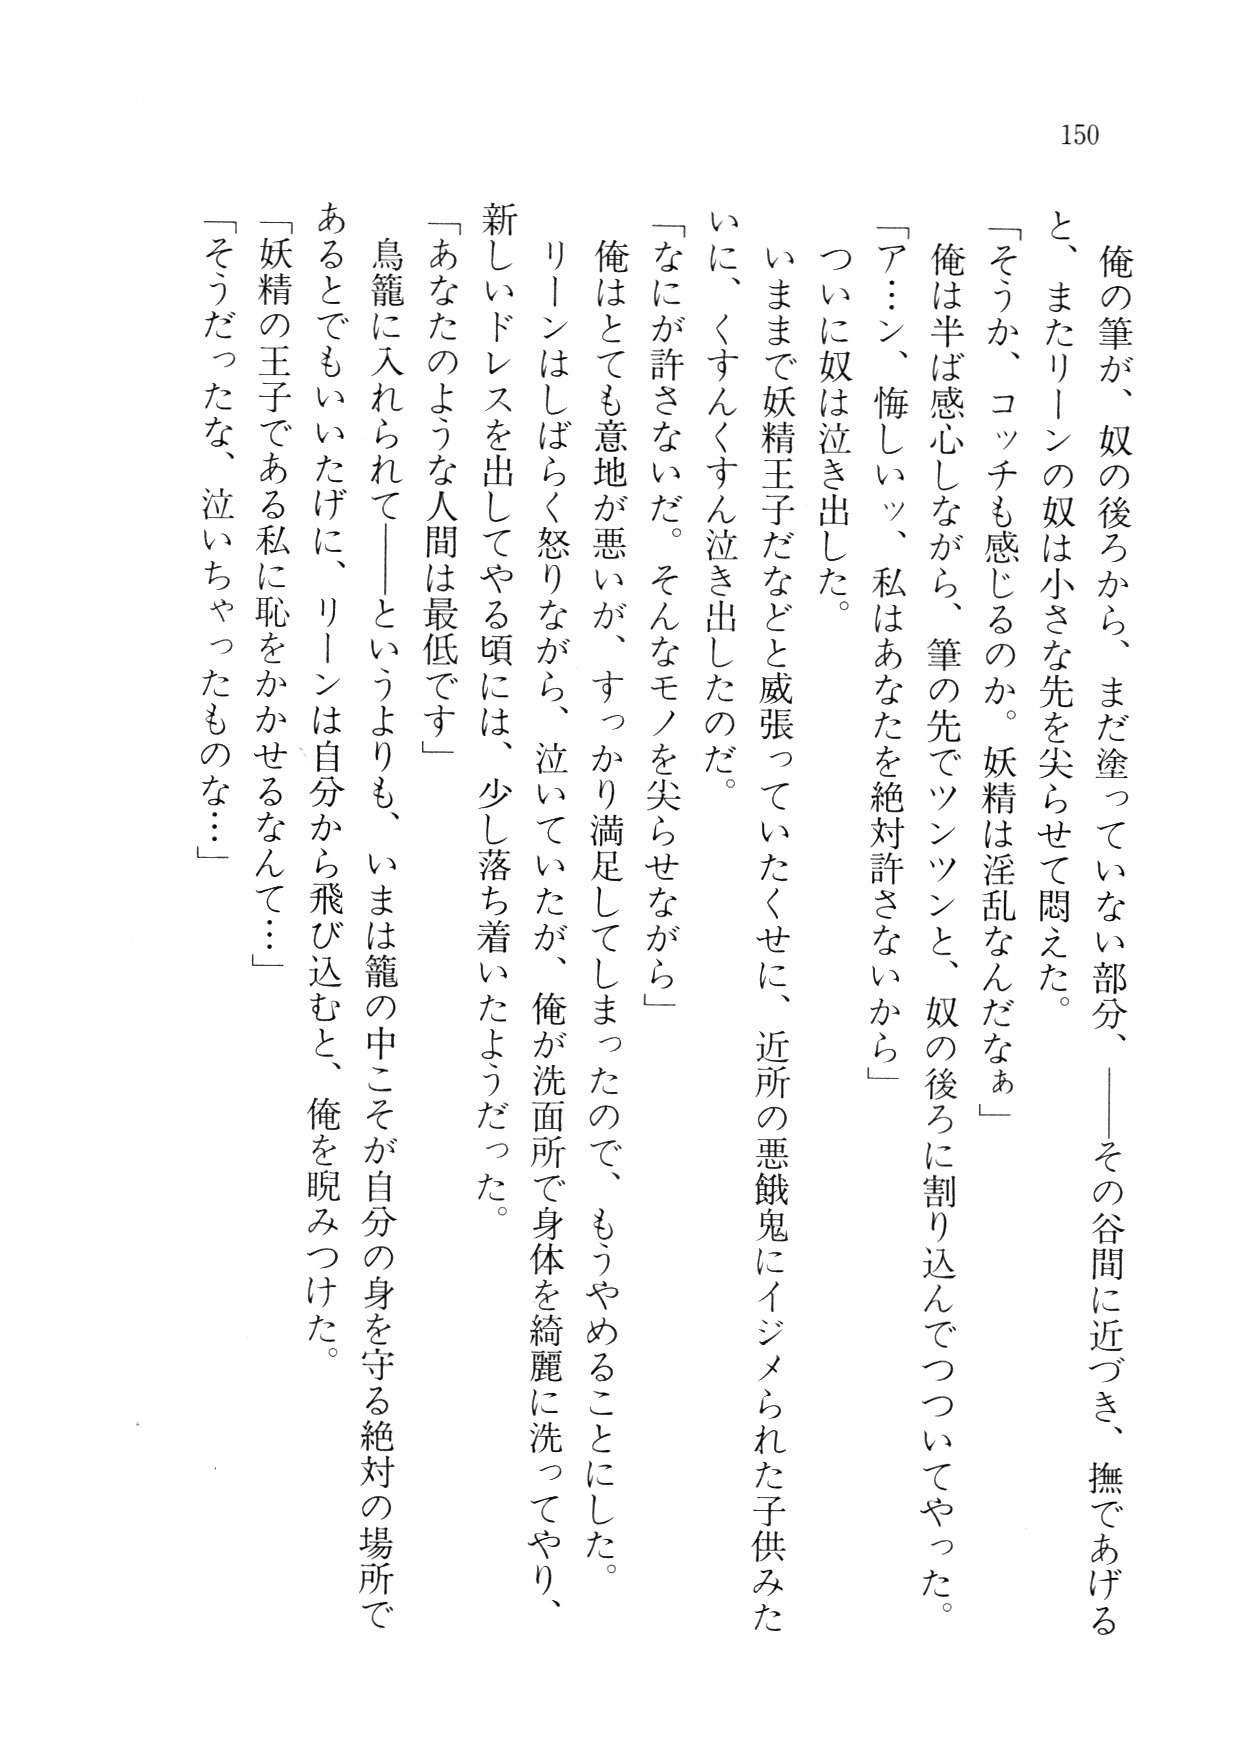 150
　俺の筆が、奴の後ろから、まだ塗っていない部分、――その谷間に近づき、撫であげる
と、またリーンの奴は小さな先を尖らせて悶えた。
「そうか、コッチも感じるのか。妖精は淫乱なんだなぁ」
　俺は半ば感心しながら、筆の先でツンツンと、奴の後ろに割り込んでつついてやった。
「ア…ン、悔しいッ、私はあなたを絶対許さないから」
　ついに奴は泣き出した。
　いままで妖精王子だなどと威張っていたくせに、近所の悪餓鬼にイジメられた子供みた
いに、くすんくすん泣き出したのだ。
「なにが許さないだ。そんなモノを尖らせながら」
　俺はとても意地が悪いが、すっかり満足してしまったので、もうやめることにした。
　リーンはしばらく怒りながら、泣いていたが、俺が洗面所で身体を綺麗に洗ってやり、
新しいドレスを出してやる頃には、少し落ち着いたようだった。
「あなたのような人間は最低です」
　鳥籠に入れられて――というよりも、いまは籠の中こそが自分の身を守る絶対の場所で
あるとでもいいたげに、リーンは自分から飛び込むと、俺を睨みつけた。
「妖精の王子である私に恥をかかせるなんて…」
「そうだったな、泣いちゃったものな…」